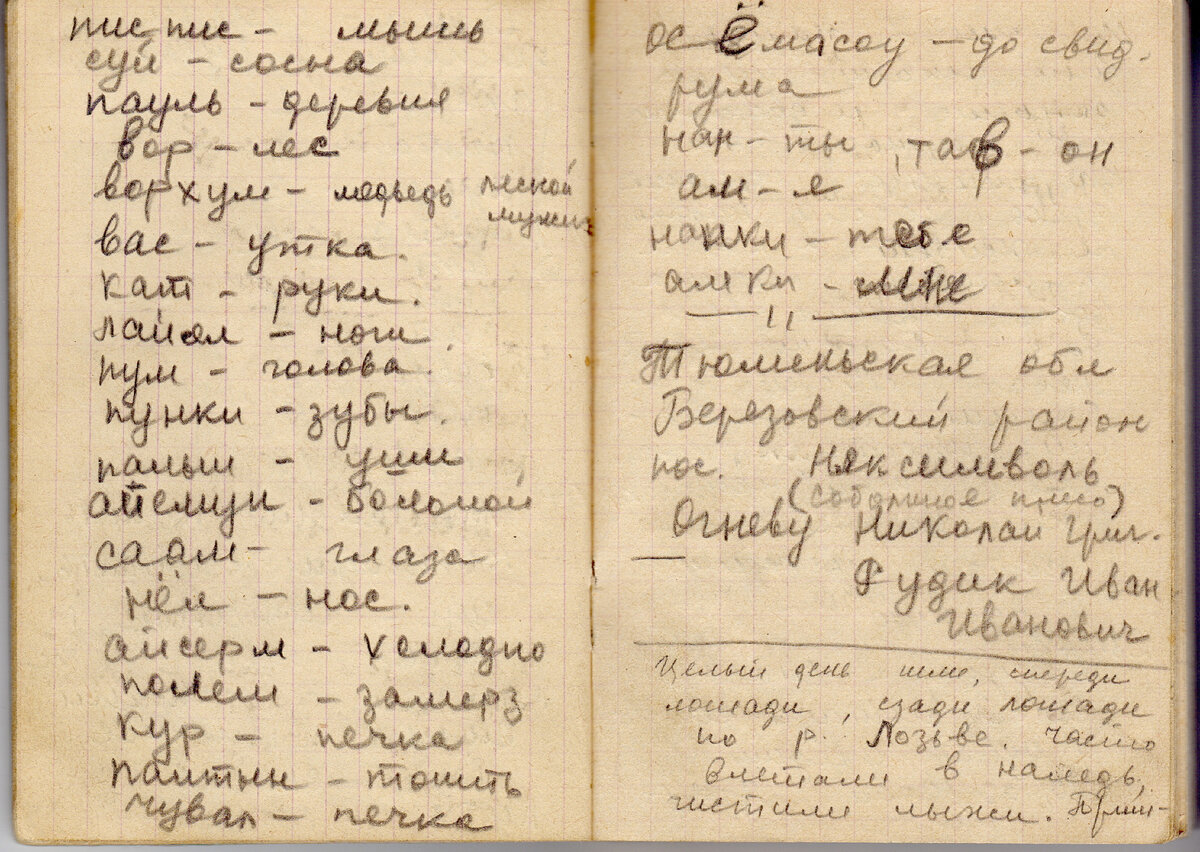 пис пис - мышь
суй - сосна
пауль - деревня
вор - лес
ворхум - медведь лесной
вас - утка.
кат - руки.
лаиял - ноги.
пум - голова.
пунки - зубы.
палыш - уши
- больной
саам - глаза
нёл - нос.
айсерм - холодно
полем - замерз
кур - печка
палтын - топить
чувал - печка
ос ёмасоу - до свид.
рума
нан - ты, тав - он
ам - я
нанки - тебе
амки - мне
- " -
Тюменьская обл
Березовский район
пос. Няксимволь
Огневу Николаи Григ.
Рудик Иван
Иванович
Целый день шли, спереди
лошади, сзади лошади
по р. Лозьве. часто
влетали в наледь,
чистили лыжи. Приш-